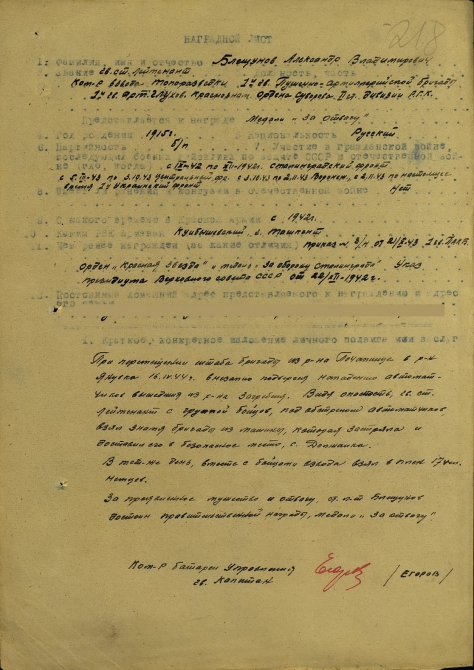 218
НАГРАДНОЙ ЛИСТ
1. Фамилия, имя и отчество Блощунов, Александр Владимирович
2. Звание гв. ст. Лейтенант должность, часть
Ком-р взвода топоразведки 1-й гв. Пушечно-Артиллерийской бригады
1-й гв. Арт. Глухов. Краснознам. Ордена Суворова дивизии Р.Г.К.
Представляется к награде Медали "За отвагу"
4. Год рождения 1915г. Национальность Русский
6. Партийность б/п 7. Участие в гражданской войне,
последующих боевых действиях по защите СССР и отечественной вой-
не где, когда с IX-42 по XII-1942г. Сталинградский фронт
5.10.43 Центральный фр. с 5.10.43 по 2.11.43 Воронеж, с 2.11.43 по настоящее
время 1-й Украинский фронт
ранения и контузии в отечественной войне Нет
9. С какого времени в Красной армии с 1942г.
10. Каким РВК призван Куйбышевский, г. Ташкент
11. Чем ранее награжден (за какие отличия) приказ №
Орден "Красная Звезда" и медаль "За оборону Сталинграда" Указ
президиума Верховного совета СССР от 22/XII-1942г.
Постоянный домашний адрес представляемого к награждению и адрес
его семьи
1. Краткое, конкретное изложение личного подвига или заслуг
При перемещении штаба бригады из р-на в р-н
16.IV.44г. внезапно подвергся нападению автомат-
чиков вышедших из р-на Видя опасность, гв. ст.
Лейтенант с группой бойцов, под обстрелом автоматчиков
взял знамя бригады из машины, которая застряла и
доставил его в безопасное место, с.
В тот-же день, вместе с бойцами взвода взял в плен 17 чел.
Немцев.
За проявленное мужество и отвагу, л-т Блощунов
достоин правительственной награды, медали "За отвагу".
Ком-р батареи Управления
гв. Капитан
/ЕГОРОВ/